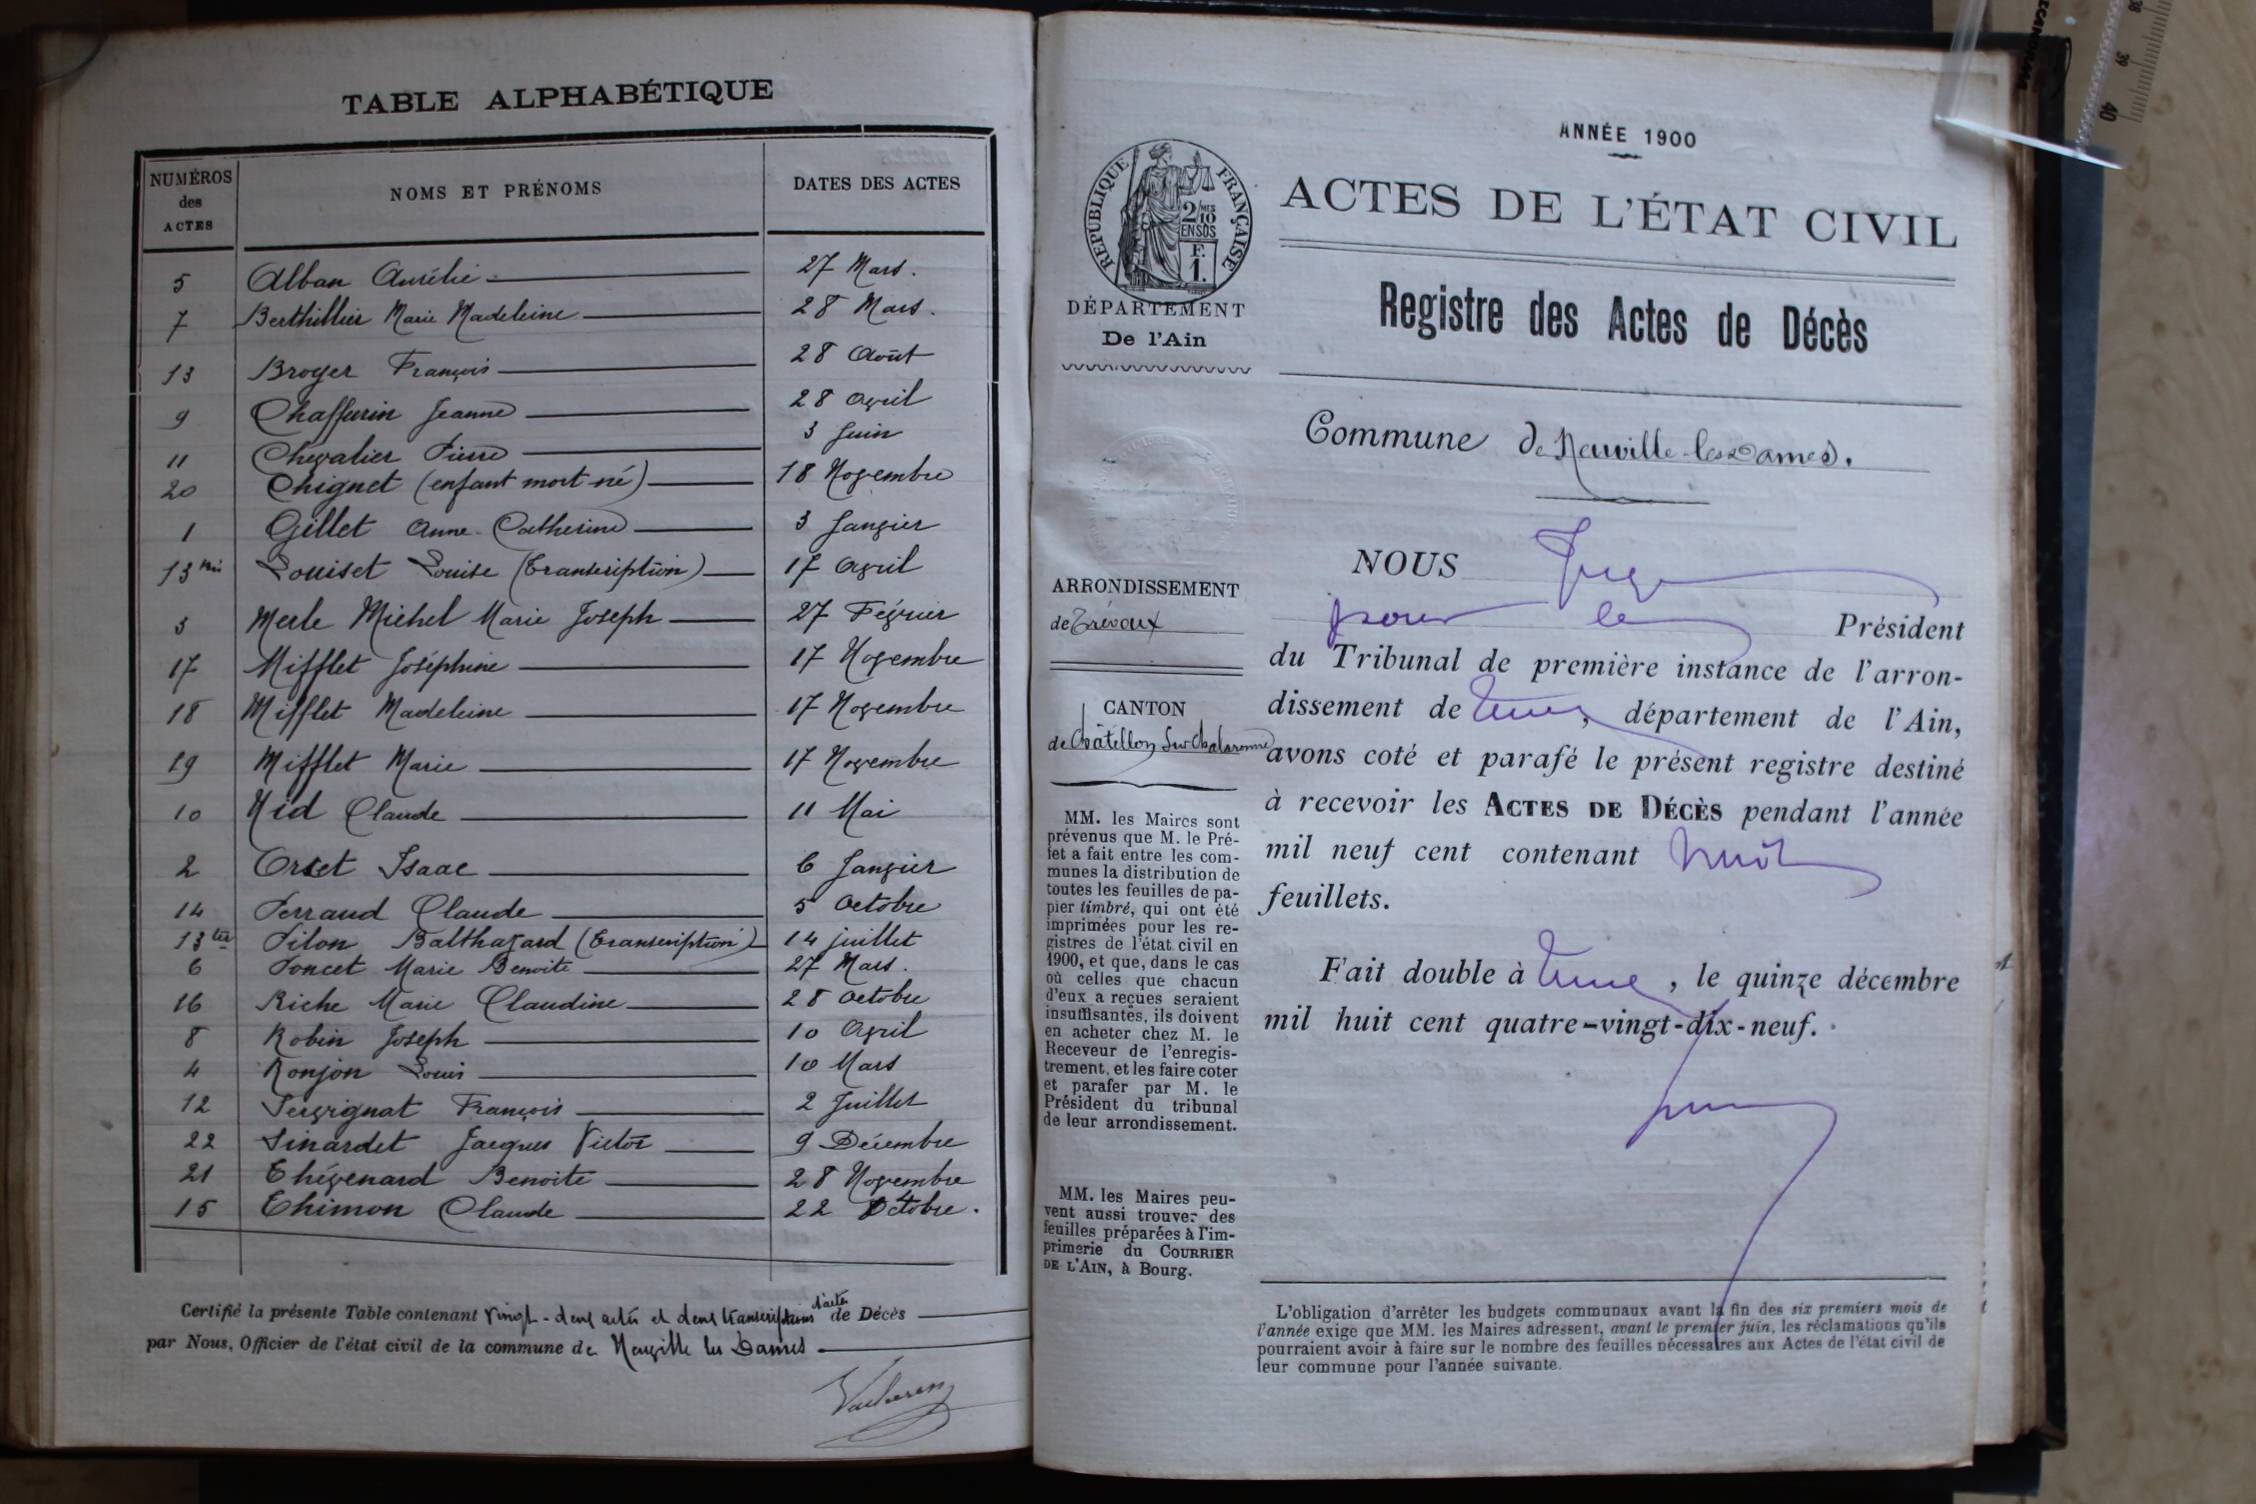 TABLE ALPHABÉTIQUE
NUMÉROS des ACTES NOMS ET PRÉNOMS DATES DES ACTES
5 Alban Aurélie 27 Mars.
7 Berthillier Marie Madeleine 28 Mars.
13 Broyer François 28 Août
9 Chaffurin Jeanne 28 Avril
11 Chevalier Pierre 3 Juin
20 Chignet (enfant mort-né) 18 Novembre
1 Gillet Anne-Catherine 3 Janvier
13 bis Louiset Louise (Transcription) 17 Avril
3 Merle Michel Marie Joseph 27 Février
17 Mifflet Joséphine 17 Novembre
18 Mifflet Madeleine 17 Novembre
19 Mifflet Marie 17 Novembre
10 Nid Claude 11 Mai
2 Orset Isaac 6 Janvier
14 Perraud Claude 5 Octobre
13 ter Pilon Balthazard (Transcription) 14 juillet
6 Poncet Marie Benoite 27 Mars.
16 Riche Marie Claudine 28 Octobre
8 Robin Joseph 10 Avril
4 Ronjon Louis 10 Mars
12 Servignat François 2 Juillet
22 Sinardet Jacques Victor 9 Décembre
21 Thévenard Benoite 28 Novembre
15 Thimon Claude 22 Octobre.
Certifié la présente Table contenant vingt-deux actes et deux transcriptions d'actes de Décès
par Nous, Officier de l'état civil de la commune de Neuville les Dames
ANNÉE 1900
RÉPUBLIQUE FRANÇAISE
2/10 MES
EN SUS
F.
1.
ACTES DE L'ÉTAT CIVIL
DÉPARTEMENT
De l'Ain
Registre des Actes de Décès
Commune de Neuville-les-Dames.
ARRONDISSEMENT
de Trévoux
CANTON
de Châtillon sur Chalaronne
MM. les Maires sont
prévenus que M. le Pré-
fet a fait entre les com-
munes la distribution de
toutes les feuilles de pa-
pier timbré, qui ont été
imprimées pour les re-
gistres de l'état civil en
1900, et que, dans le cas
où celles que chacun
d'eux a reçues seraient
insuffisantes, ils doivent
en acheter chez M. le
Receveur de l'enregis-
trement, et les faire coter
et parafer par M. le
Président du tribunal
de leur arrondissement.
MM. les Maires peu-
vent aussi trouver des
feuilles préparées à l'im-
primerie du COURRIER
DE L'AIN, à Bourg.
NOUS Juge
pour le Président
du Tribunal de première instance de l'arron-
dissement de , département de l'Ain,
avons coté et parafé le présent registre destiné
à recevoir les ACTES DE DÉCÈS pendant l'année
mil neuf cent contenant huit
feuillets.
Fait double à , le quinze décembre
mil huit cent quatre-vingt-dix-neuf.
L'obligation d'arrêter les budgets communaux avant la fin des six premiers mois de
l'année exige que MM. les Maires adressent, avant le premier juin, les réclamations qu'ils
pourraient avoir à faire sur le nombre des feuilles nécessaires aux Actes de l'état civil de
leur commune pour l'année suivante.
38
39
40